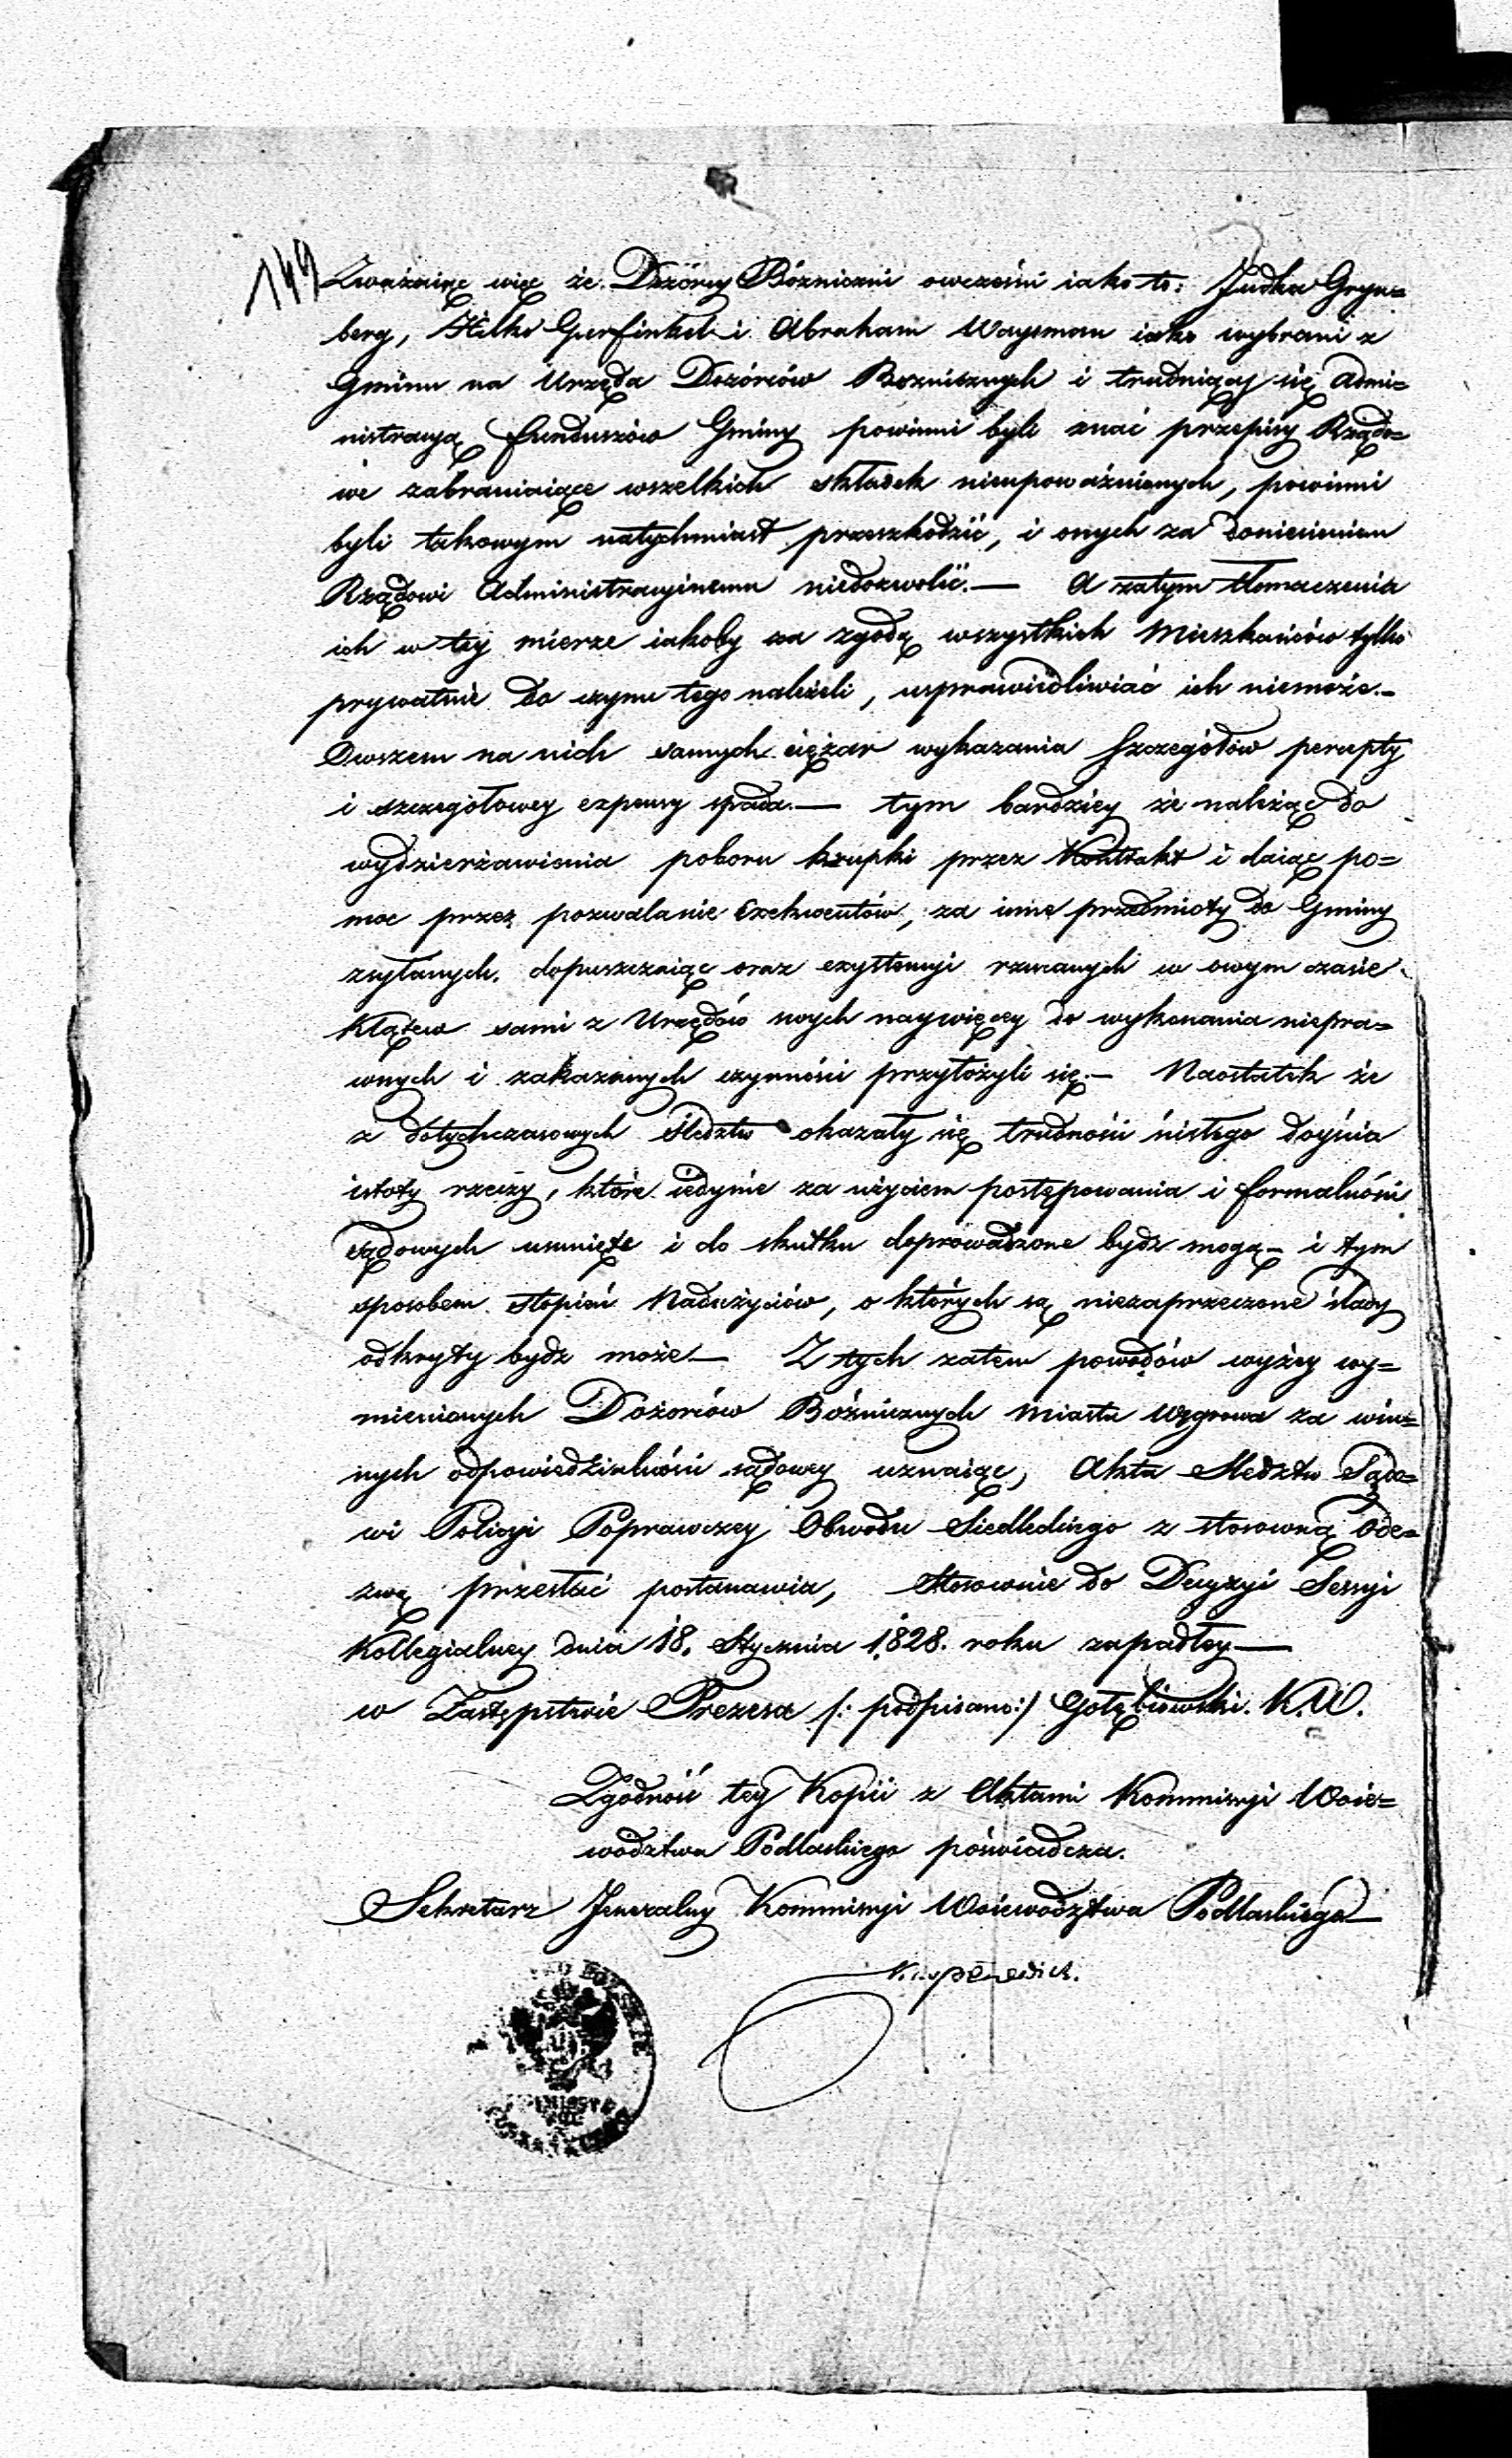 149
Zważaiąc więc że Dozórcy Bózniczni owcześni iako to: Judka Gryn=
berg, Hilko Gurfinkel i Abraham Waysman iako wybrani z
Gminu na Urzęda Dozórców Boznicznych i trudniący się Admi=
nistracyą funduszów Gminy powinni byli znać przepisy Rządo=
we zabraniaiące wszelkich składek nieupoważnionych, powinni
byli takowym natychmiast przeszkodzić, i onych za doniesieniem
Rządowi Administracyinemu niedozwolić.— A zatym tłomaczenia
ich w tey mierze iakoby za zgodą wszystkich Mieszkańców tylko
prywatnie do czynu tego należeli, usprawiedliwiać ich niemoże.—
Owszem na nich samych ciężar wykazania szczegółów percepty
i szczegółowey expensy spada.— tym bardziey że należąc do
wydzierżawienia poboru krupki przez Kontrakt i daiąc po=
moc przez pozwalanie Exekwentów, za inne przedmioty do Gminy
zsyłanych, dopuszczaiąc oraz exystencyi rzucanych w owym czasie
Klątew sami z Urzędów swych naywięcey do wykonania niepra=
wnych i zakazanych czynności przyłożyli się.— Naostatek że
z dotychczasowych Śledztw okazały się trudności ścisłego doyścia
istoty rzeczy, które iedynie za użyciem postępowania i formalności
sądowych usunięte i do skutku doprowadzone bydz mogą— i tym
sposobem stopień Nadużyciów, o których są niezaprzeczone ślady
odkryty bydz może— Z tych zatem powodów wyżey wy=
mienionych Dozorców Bóżnicznych Miasta Węgrowa za win=
nych odpowiedzialności sądowey uznaiąc, Akta Sledztw Sądo=
wi Policyi Poprawczey Obwodu Siedleckiego z stosowną Ode=
zwą przesłać postanawia, Stosownie do Decyzyi Sessyi
Kollegialney dnia 18. Stycznia 1828. roku zapadłey—
w Zastępstwie Prezesa /: podpisano:/ Gołębiowski. K.W.
Zgodność tey Kopii z Aktami Kommissyi Woie=
wództwa Podlaskiego poświadcza.
Sekretarz Jeneralny Kommissyi Woiewództwa Podlaskiego—